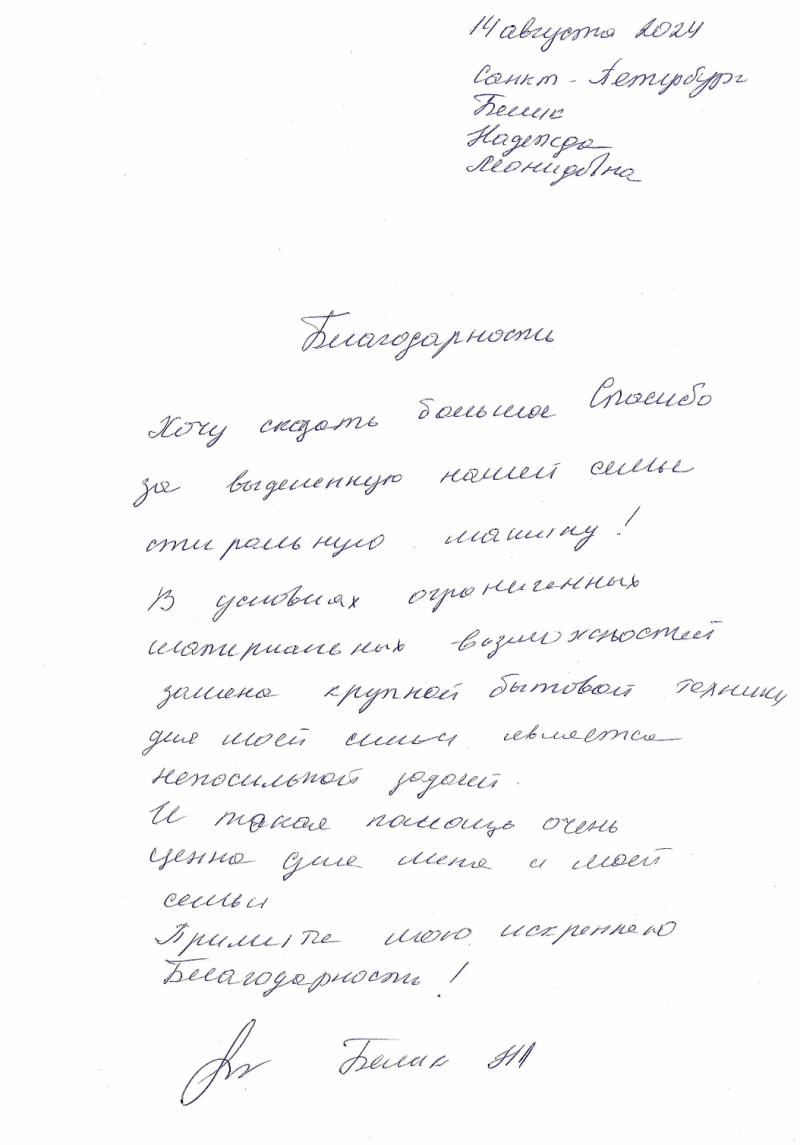 14 августа 2024
Санкт-Петербург
Белик
Надежда
Леонидовна
Благодарность
Хочу сказать большое Спасибо
за выделенную нашей семье
стиральную машину!
В условиях ограниченных
материальных возможностей
замена крупной бытовой техники
для моей семьи является
непосильной задачей.
И такая помощь очень
ценна для меня и моей
семьи
Примите мою искреннею
Благодарность!
Белик НЛ